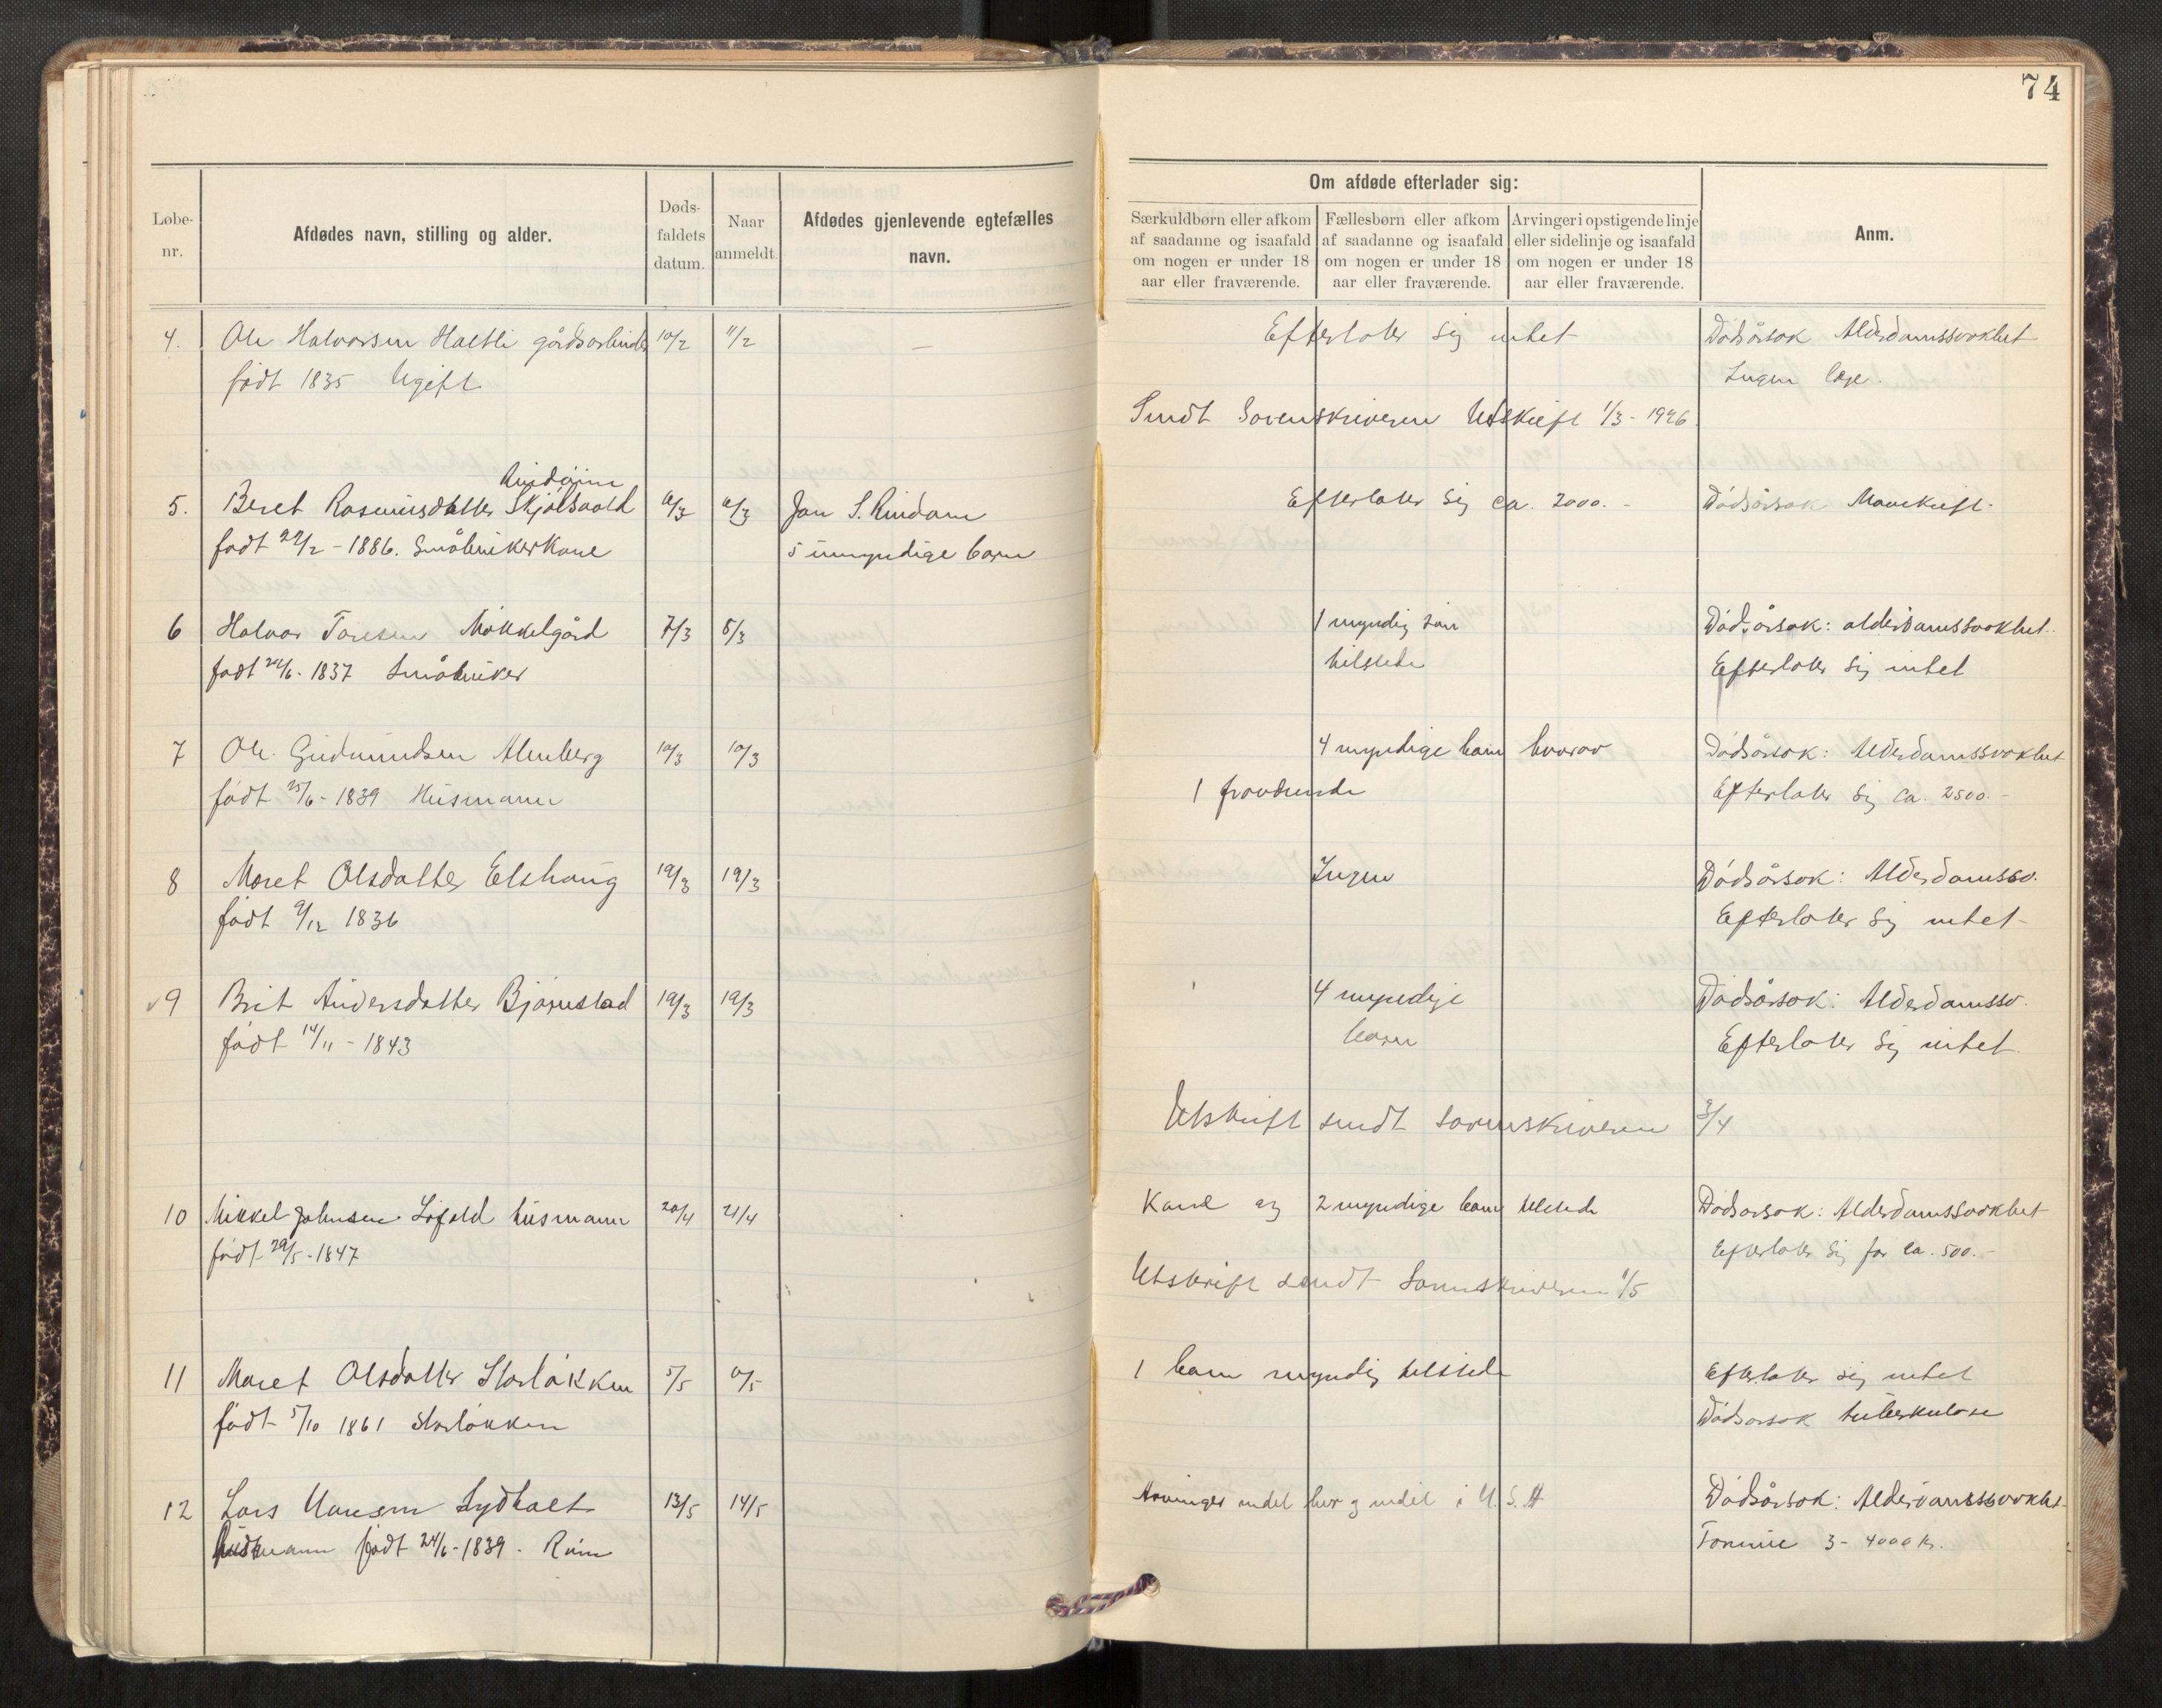 74
Løbe-
nr.
Afdødes navn, stilling og alder.
Døds-
faldets
datum.
Naar
anmeldt.
Afdødes gjenlevende egtefælles
navn.
Om afdøde efterlader sig:
Særkuldbørn eller afkom
af saadanne og isaafald
om nogen er under 18
aar eller fraværende.
Fællesbørn eller afkom
af saadanne og isaafald
om nogen er under 18
aar eller fraværende.
Arvinger i opstigende linje
eller sidelinje og isaafald
om nogen er under 18
aar eller fraværende.
Anm.
4. Ole Halvorsen Haltli gårdsarbeider 10/2 11/2 — Efterlater sig intet Dødsårsak Alderdomssvakhet
født 1835 Ugift Ingen læge.
Sendt Sorenskriveren Utskrift 1/3 - 1926
Rindaune
5. Beret Rasmusdatter Skjølsvold 6/3 6/3 Jon S. Rindaune Efterlater sig ca. 2000. - Dødsårsak Mavekreft.
født 22/2 - 1886. Småbrukerkone 5 umyndige barn
6 Halvor Toresen Mokkelgård 7/3 8/3 1 myndig søn Dødsårsak: alderdomssvakhet.
født 24/6 - 1837 Småbruker tilstede Efterlater sig intet
7 Ole Gudmundsen Almberg 10/3 10/3 4 myndige barn hvorav Dødsårsak: Alderdomssvakhet
født 25/6 - 1839 Husmann 1 fraværende Efterlater sig ca. 2500. -
8 Maret Olsdatter Elshaug 19/3 19/3 Ingen Dødsårsak: Alderdomssv.
født 9/12 1836 Efterlater sig intet -
9 Brit Andersdatter Bjørnstad 19/3 19/3 4 myndige Dødsårsak: Alderdomssv.
født 14/11 - 1843 barn Efterlater sig intet.
Utskrift sendt sorenskriveren 3/4
10 Mikkel Johnsen Løfald husmann 20/4 21/4 Kone og 2 myndige barn tilstede Dødsårsak: Alderdomssvakhet
født 29/5 - 1847 Efterlater sig for ca. 500. -
Utskrift sendt Sorenskriveren 1/5
11 Maret Olsdatter Storløkken 5/5 1 barn myndig tilstede Efterlater sig intet
født 5/10 1861 Storløkken Dødsårsak tuberkulose
12 Lars Hansen Lydholt 13/5 14/5 Arvinger endel her og endel i U.S.A Dødsårsak: Alderdomssvakhet.
Husmann født 24/6 - 1839. Formue 3 - 4000 kr.